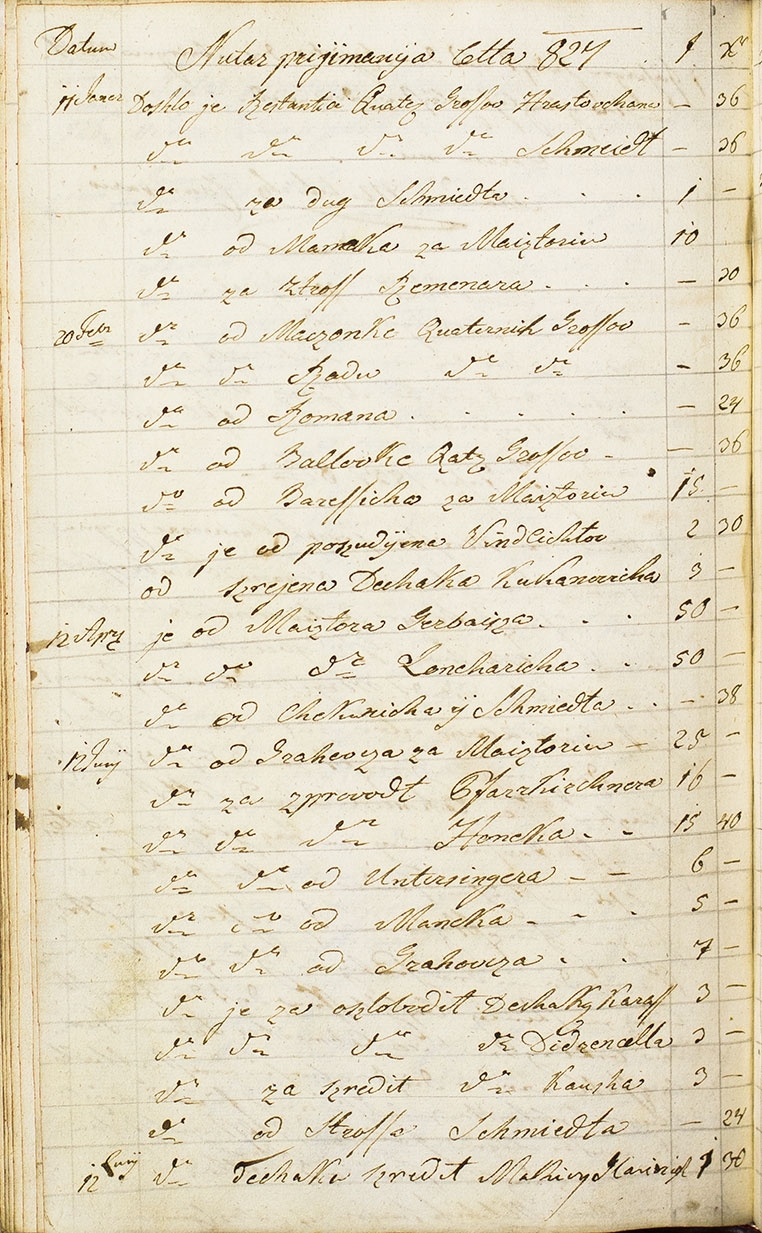 Datum Nutar prijimanija Etta 827 f xr
11 Janer Doshlo je Restantia Quatr Grossov Hrastovchana – 36
do do do do Schmiedt – 36
do za dug Schmiedta . . . 1 –
do od Mameka za Maiztoriu 10
do za Ztroff Remenara . . . – 30
20 Febr do od Maczonke Quaternih Grossov – 36
do do Radu do do – 36
do od Romana . . . . . . – 24
do od Ballovke Qatr Grossov – – 36
do od Baressicha za Maiztoriu 15 –
do je od poszudijena Vindlichtov 2 30
od szrejena Dechaka Kukanovicha 3 –
12 Apr je od Maiztora Gerbaisza . . . 50 –
do do do Loncharicha . . 50 –
do od Chekunicha ij Schmiedta . . – 38
12 Junij do od Grahovcza za Maiztoriu – 25 –
do za zprovodt Pfarrkirchnera 16 –
do do do Heneka – – 15 40
do do od Untersingera – – 6 –
do do od Maneka – – . 5 –
do do od Grahovcza . . 7 –
do je za oszlobodit Dechaka Karass 3 –
do do do do Didzenella 3 –
do za szredit do Kauska 3 –
do od Stroffa Schmiedta – 24
12 Junij do Dechaka szredit 1 30